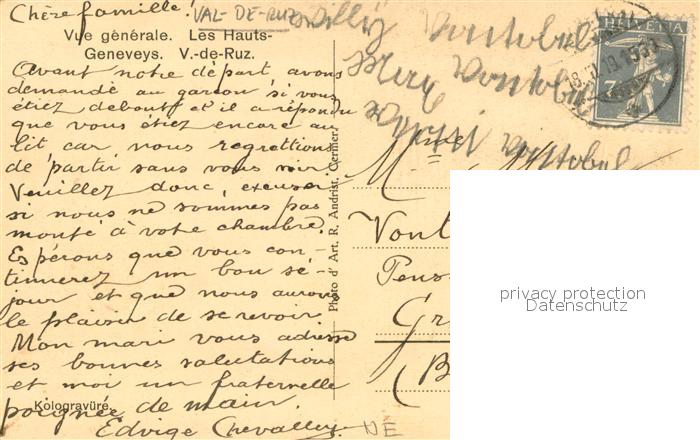 Chère famille!
VAL-DE-RUZ
Vue générale. Les Hauts-
Geneveys. V.-de-Ruz.
Avant notre départ avons
demandé au garçon si vous
étiez debout et il a répondu
que vous étiez encore au
lit car nous regrettions
de partir sans vous voir.
Veuillez donc, excuser
si nous ne sommes pas
monté à votre chambre.
Espérons que vous con-
tinuerez un bon sé-
jour et que nous aurons
le plaisir de se revoir.
Mon mari vous adresse
ses bonnes salutations
et moi un fraternelle
poignée de main.
Edvige Chevalley
Kologravüre.
NE
Photo d'Art. R. Andrist, Cernier.
Willy Vontobel
Max Vontobel
Vontobel
HELVETIA
Mme
Vont
Pens
Gr
(B
privacy protection
Datenschutz